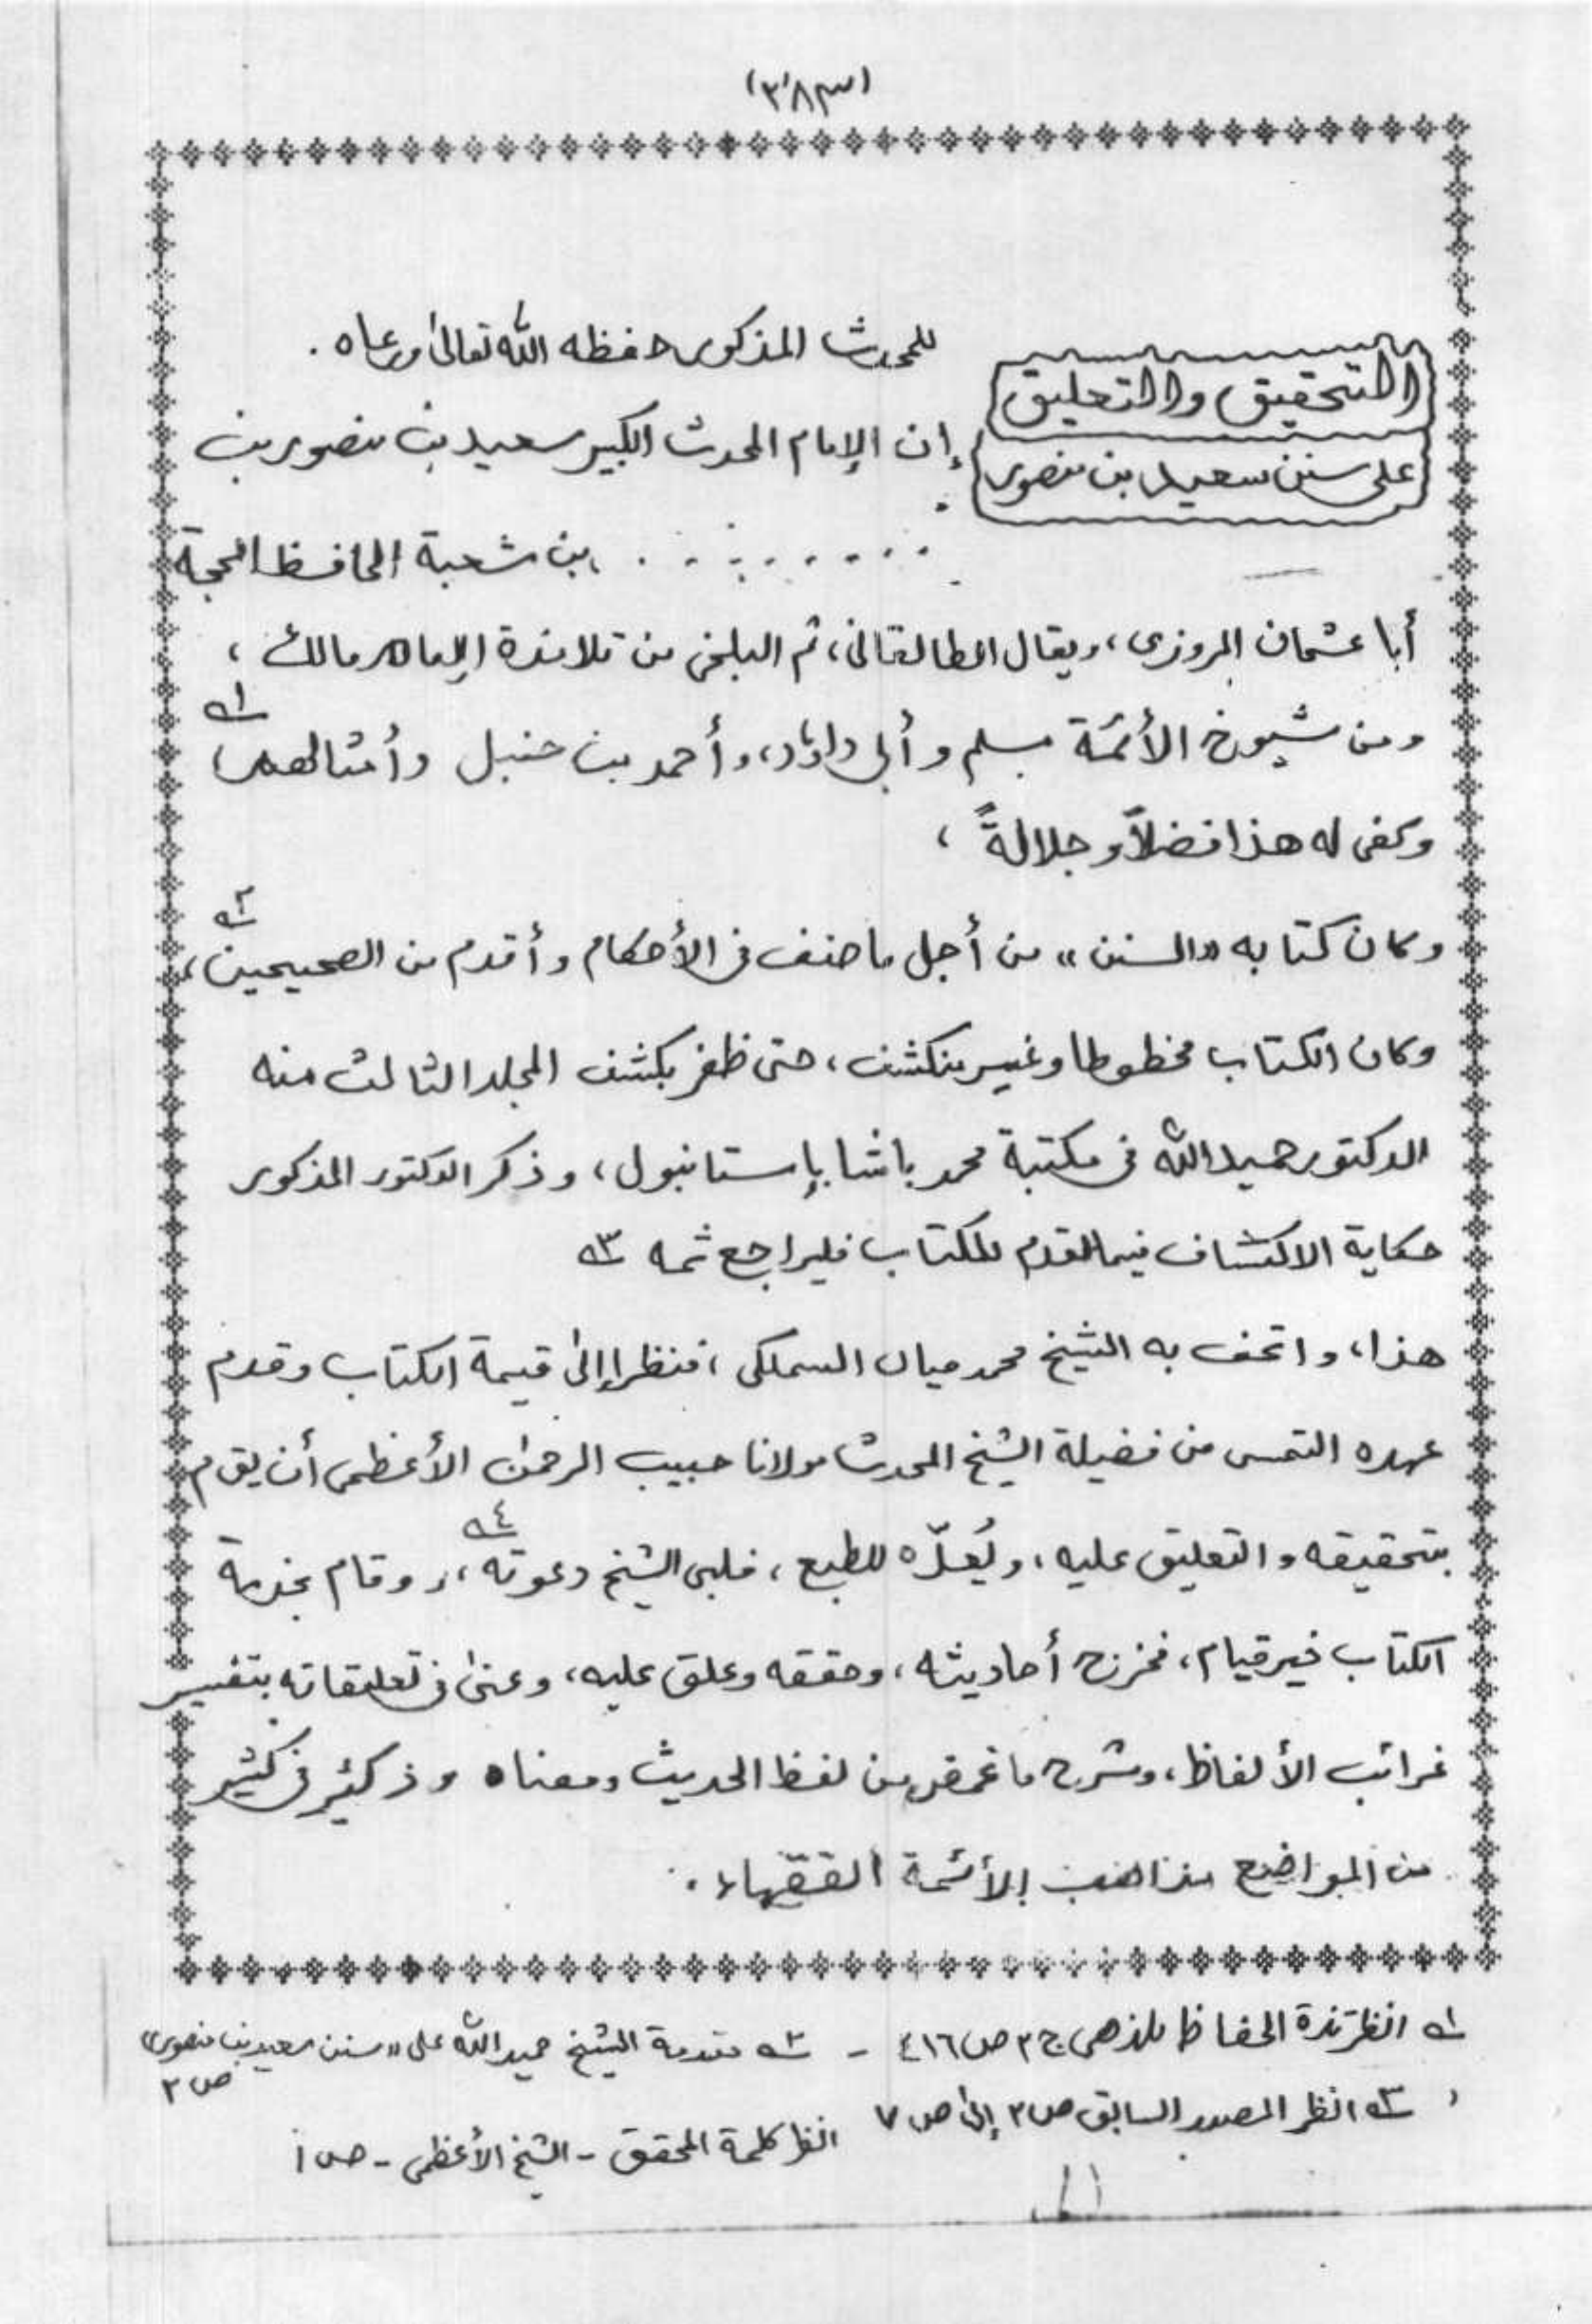 (٣٨٣)
التحقيق والتعليق
على سنن سعيد بن منصور
للمحدث المذكور حفظه الله تعالىٰ ورعاه .
إن الإمام المحدث الكبير سعيد بن منصور بن
. . . . . . . . . بن شعبة الحافظ الحجة
أبا عثمان المروزى، ويقال الطالقانى، ثم البلخى من تلامذة الإمام مالك ،
ومن شيوخ الأئمة مسلم وأبى داؤد، وأحمد بن حنبل وأمثالهم ١ه
وكفى له هذا فضلاً وجلالةً ،
وكان كتابه «السنن» من أجل ما صنف فى الأحكام وأقدم من الصحيحين ٢ه،
وكان الكتاب مخطوطا وغير منكشف، حتى ظفر بكشف المجلد الثالث منه
الدكتور حميد الله فى مكتبة محمد باشا بإستانبول، وذكر الدكتور المذكور
حكاية الاكتشاف فيما لقدم للكتاب فليراجع ثمه ٣ه
هذا، واتحف به الشيخ محمد ميان السملكى، فنظرا إلىٰ قيمة الكتاب وقدم
عهده التمس من فضيلة الشيخ المحدث مولانا حبيب الرحمٰن الأعظمى أن يقوم
بتحقيقه والتعليق عليه، ويُعدّه للطبع، فلبى الشيخ دعوته ٤ه، وقام بخدمة
الكتاب خير قيام، فخرج أحاديثه، وحققه وعلق عليه، وعنىٰ فى تعليقاته بتفسير
غرائب الألفاظ، وشرح ما غمض من لفظ الحديث ومعناه وذكر فى كثير
من المواضيع مذاهب الأئمة الفقهاء .
١ه انظر تذة الحفاظ للذهبى ج ٢ ص ٤١٦ - ٢ه مقدمة الشيخ حميد الله على «سنن سعيد بن منصور» ص ٢
٣ه انظر المصدر السابق ص ٢ إلىٰ ص ٧ انظر كلمة المحقق - الشيخ الأعظمى - ص أ